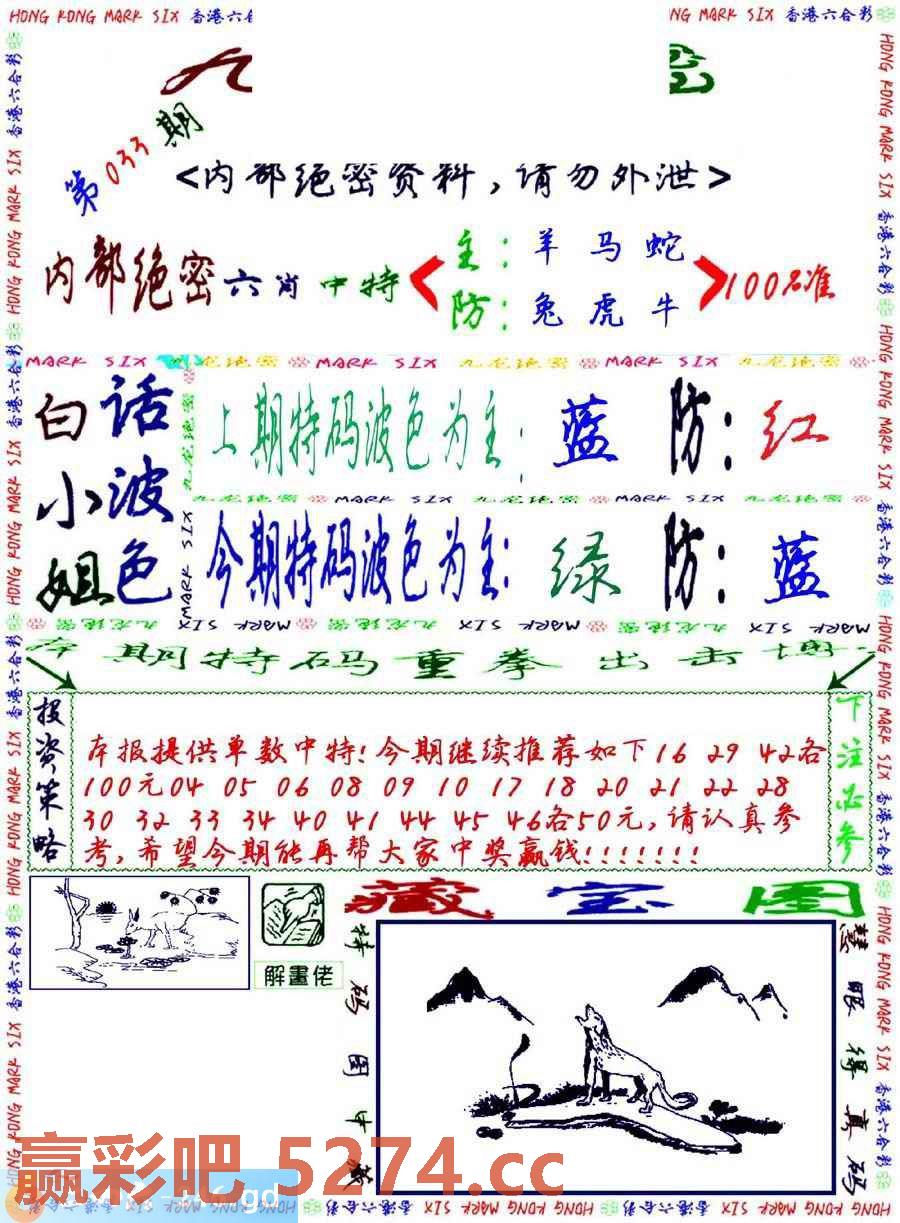 HONG KONG MARK SIX 香港六合彩
NG MARK SIX 香港六合彩
第033期
<内部绝密资料,请勿外泄>
内部绝密六肖中特
主:羊马蛇
防:兔虎牛
100%准
MARK SIX 九龙绝密 MARK SIX 九龙绝密 MARK SIX 九龙绝密
白小姐
话波色
上期特码波色为主:蓝 防:红
九龙绝密 MARK SIX 九龙绝密 MARK SIX 九龙绝密
今期特码波色为主:绿 防:蓝
九龙绝密 MARK SIX 九龙绝密 MARK SIX 九龙绝密 MARK SIX
本期特码重拳出击
投资策略
本报提供单数中特!今期继续推荐如下16 29 42各
100元04 05 06 08 09 10 17 18 20 21 22 28
30 32 33 34 40 41 44 45 46各50元,请认真参
考,希望今期能再帮大家中奖赢钱!!!!!!!
下注必参
藏宝图
解畫佬
特码图中藏
慧眼得真码
赢彩吧 5274.cc